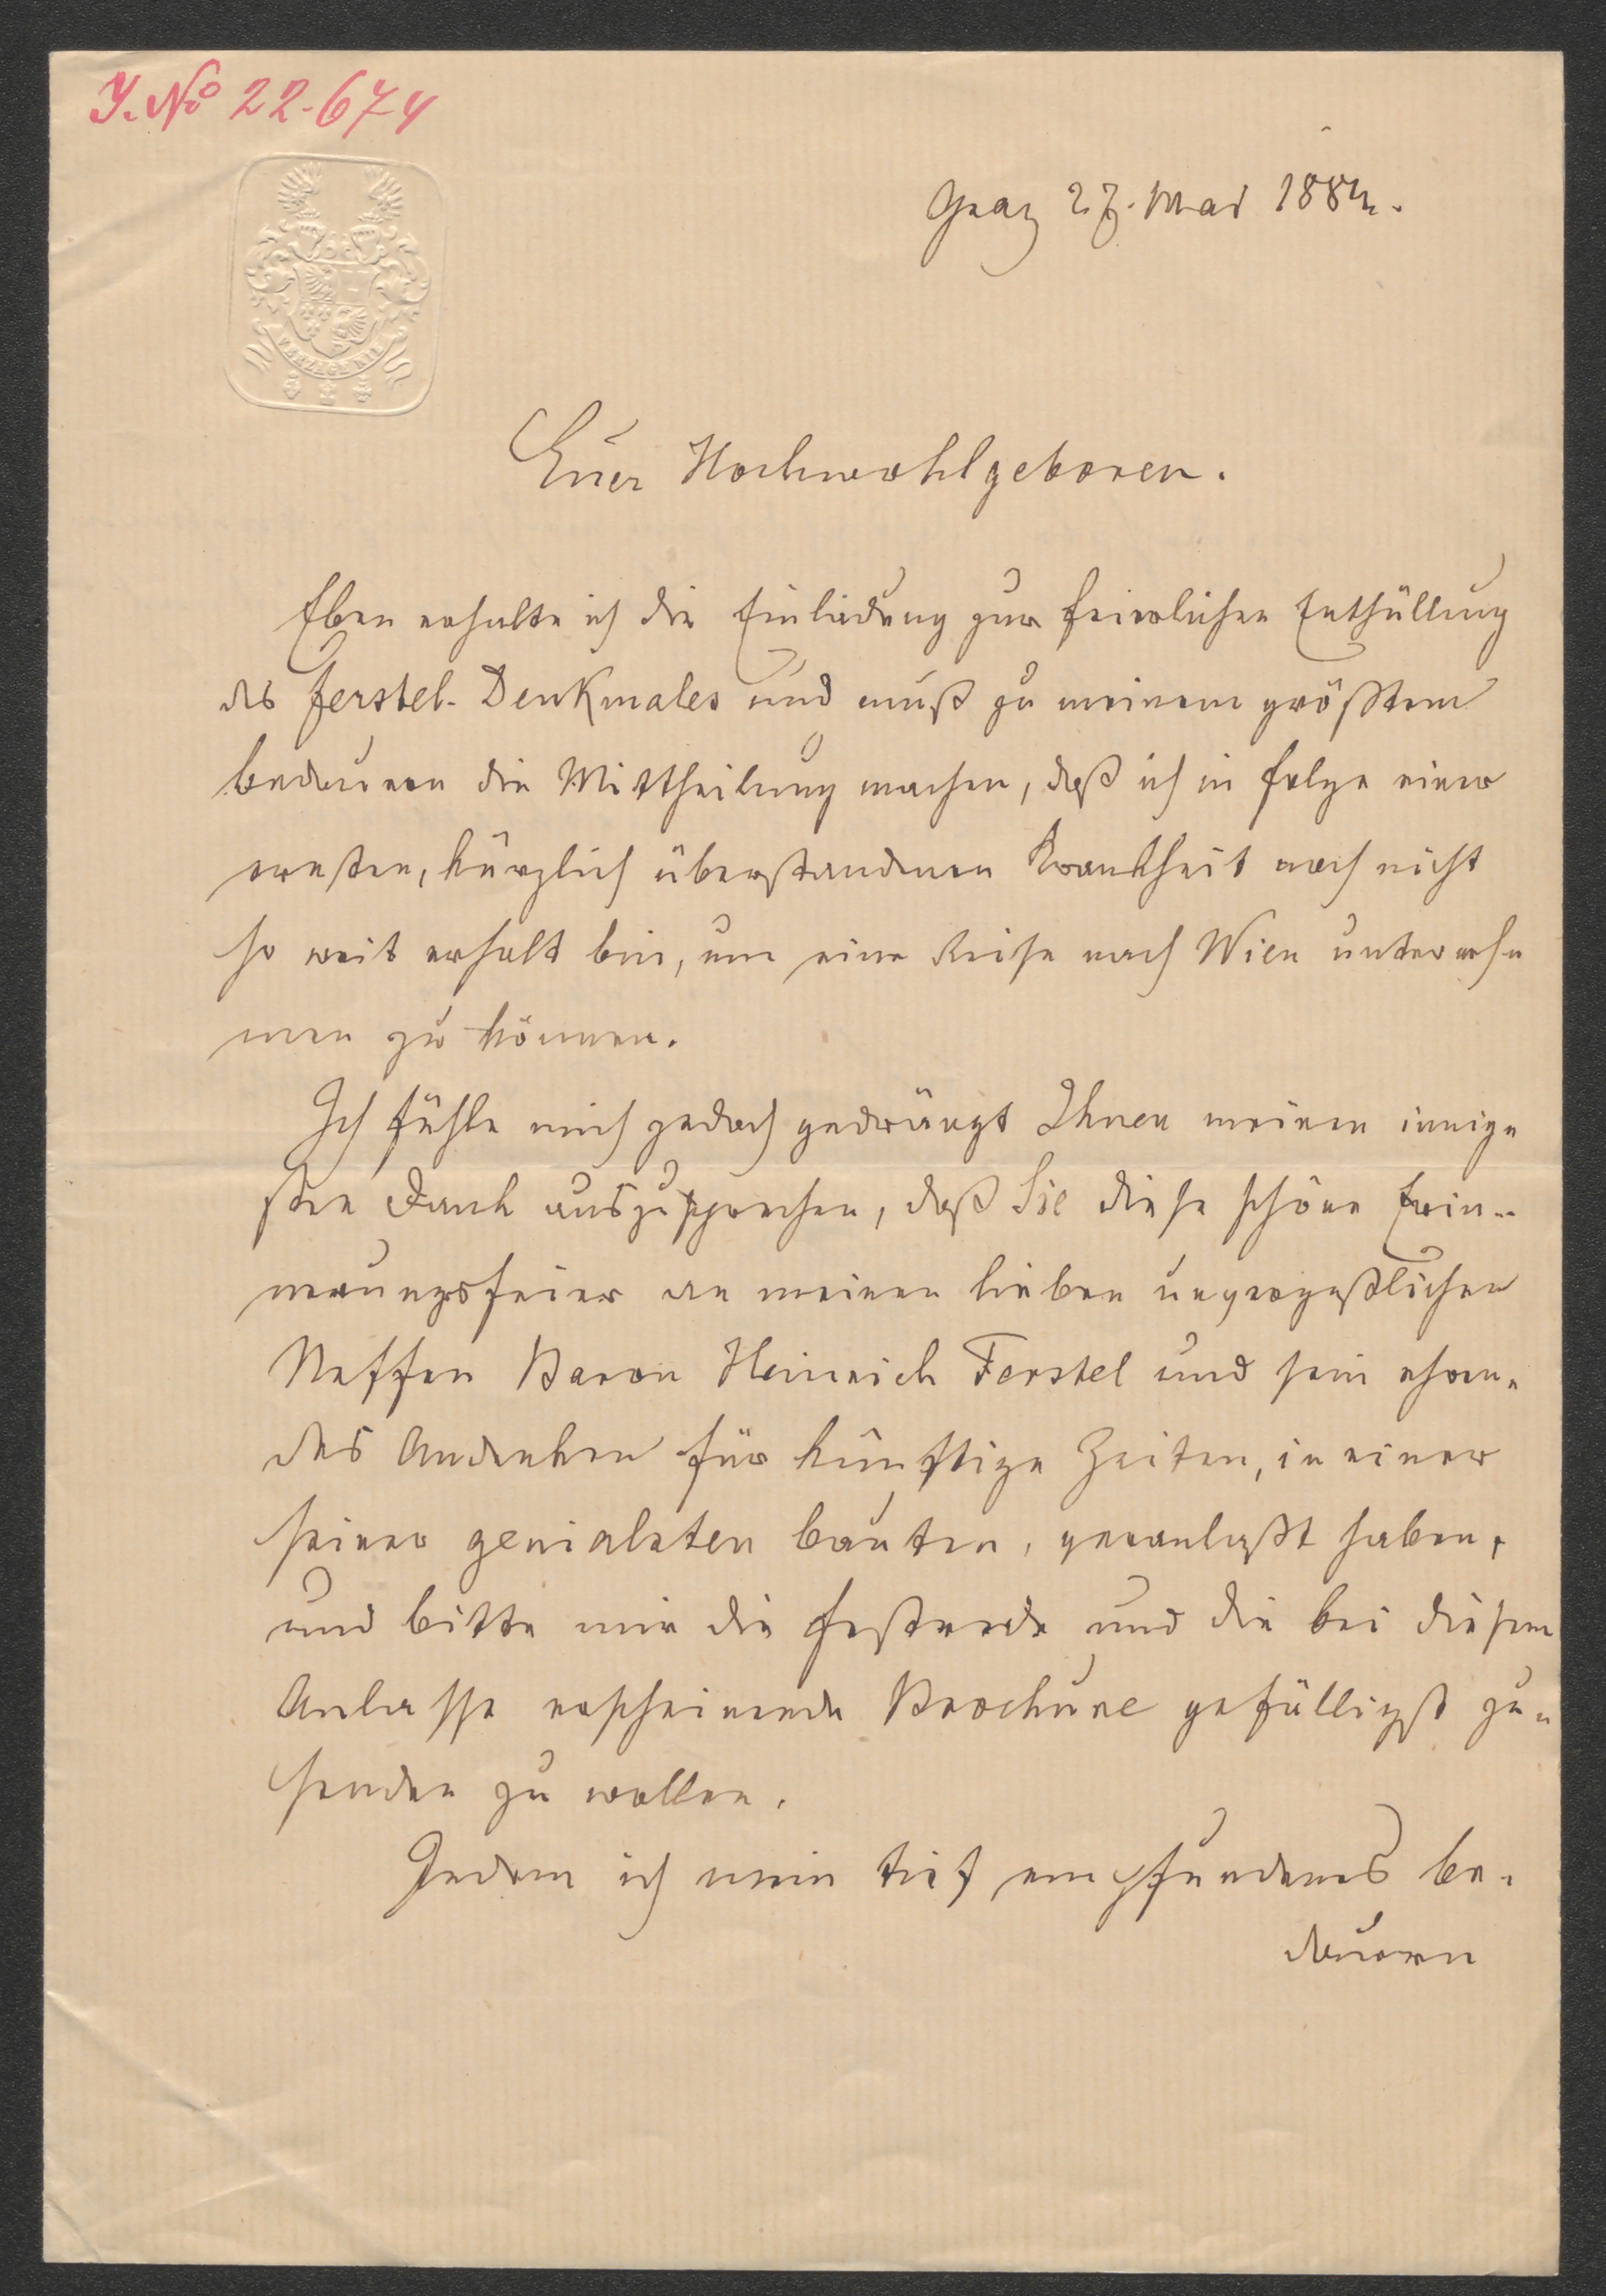 J. No 22.674
VERZAGE NIE
Graz 27. Mai 1884.
Euer Hochwohlgeboren.
Eben erhalte ich die Einladung zur feierlichen Enthüllung
des Ferstel-Denkmales und muß zu meinem größtem
bedauern die Mittheilung machen, daß ich in folge einer
ernsten, kürzlich überstandenen Krankheit noch nicht
so weit erholt bin, um eine Reise nach Wien unterneh
men zu können.
Ich fühle mich jedoch gedrängt Ihnen meinen innig
sten Dank auszusprechen, daß Sie diese schöne Erin-
nerungsfeier an meinen lieben unvergeßlichen
Neffen Baron Heinrich Ferstel und sein ehren-
des Andenken für künftige Zeiten, in einer
seiner genialsten bauten, veranlaßt haben,
und bitte mir die Festrede und die bei diesem
Anlasse erscheinende Brochure gefälligst zu-
senden zu wollen.
Indem ich mein tief empfundenes be-
dauern